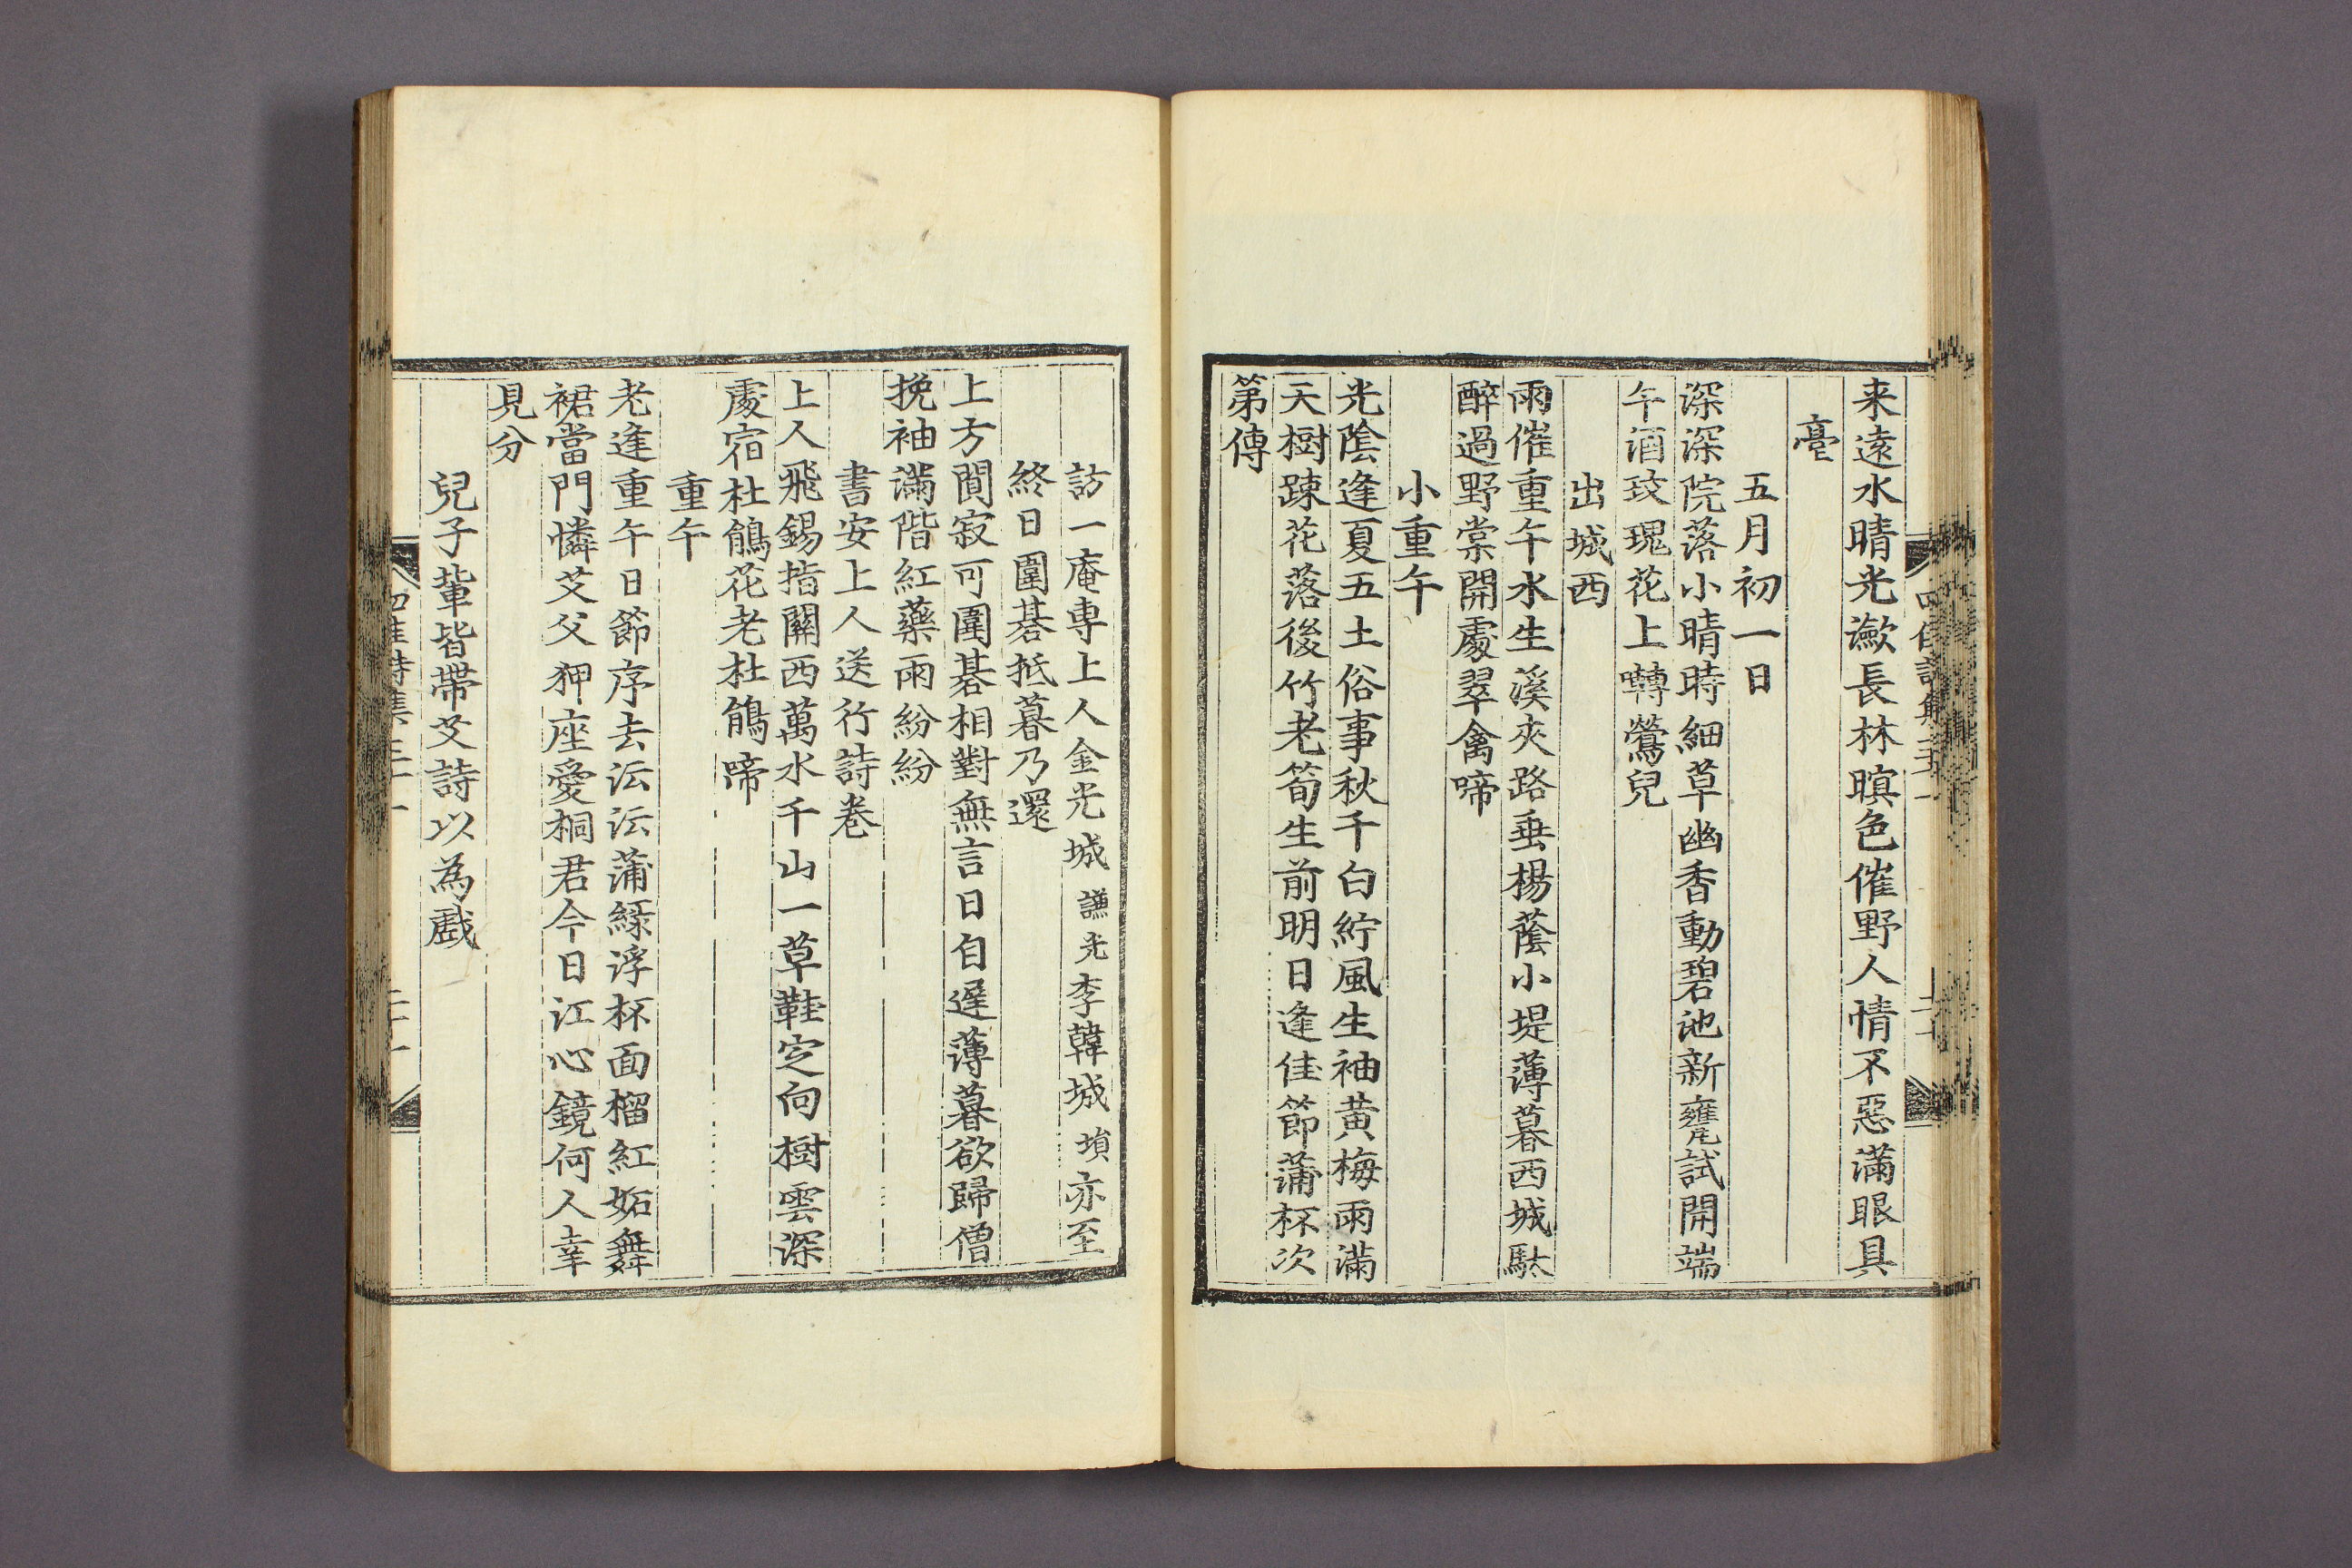 来遠水晴光瀲長林暝色催野人情不惡滿眼具
亳
五月初一日
深深院落小晴時細草幽香動碧池新甕試開端
午酒玫瑰花上囀鶯兒
出城西
雨催重午水生溪夾路垂楊蔭小堤薄暮西城馱
醉過野棠開處翠禽啼
小重午
光陰逢夏五土俗事秋千白紵風生袖黃梅雨滿
天樹踈花落後竹老筍生前明日逢佳節蒲杯次
第傳
訪一庵專上人金光城謙光李韓城塤亦至
終日圍碁抵暮乃還
上方閴寂可圍碁相對無言日自遲薄暮欲歸僧
挽袖滿階紅藥雨紛紛
書安上人送行詩卷
上人飛錫指關西萬水千山一草鞋定向樹雲深
處宿杜鵑花老杜鵑啼
重午
老逢重午日節序去沄沄蒲綠浮杯面榴紅妬舞
裙當門憐艾父狎座愛桐君今日江心鏡何人幸
見分
兒子輩皆帶艾詩以為戲